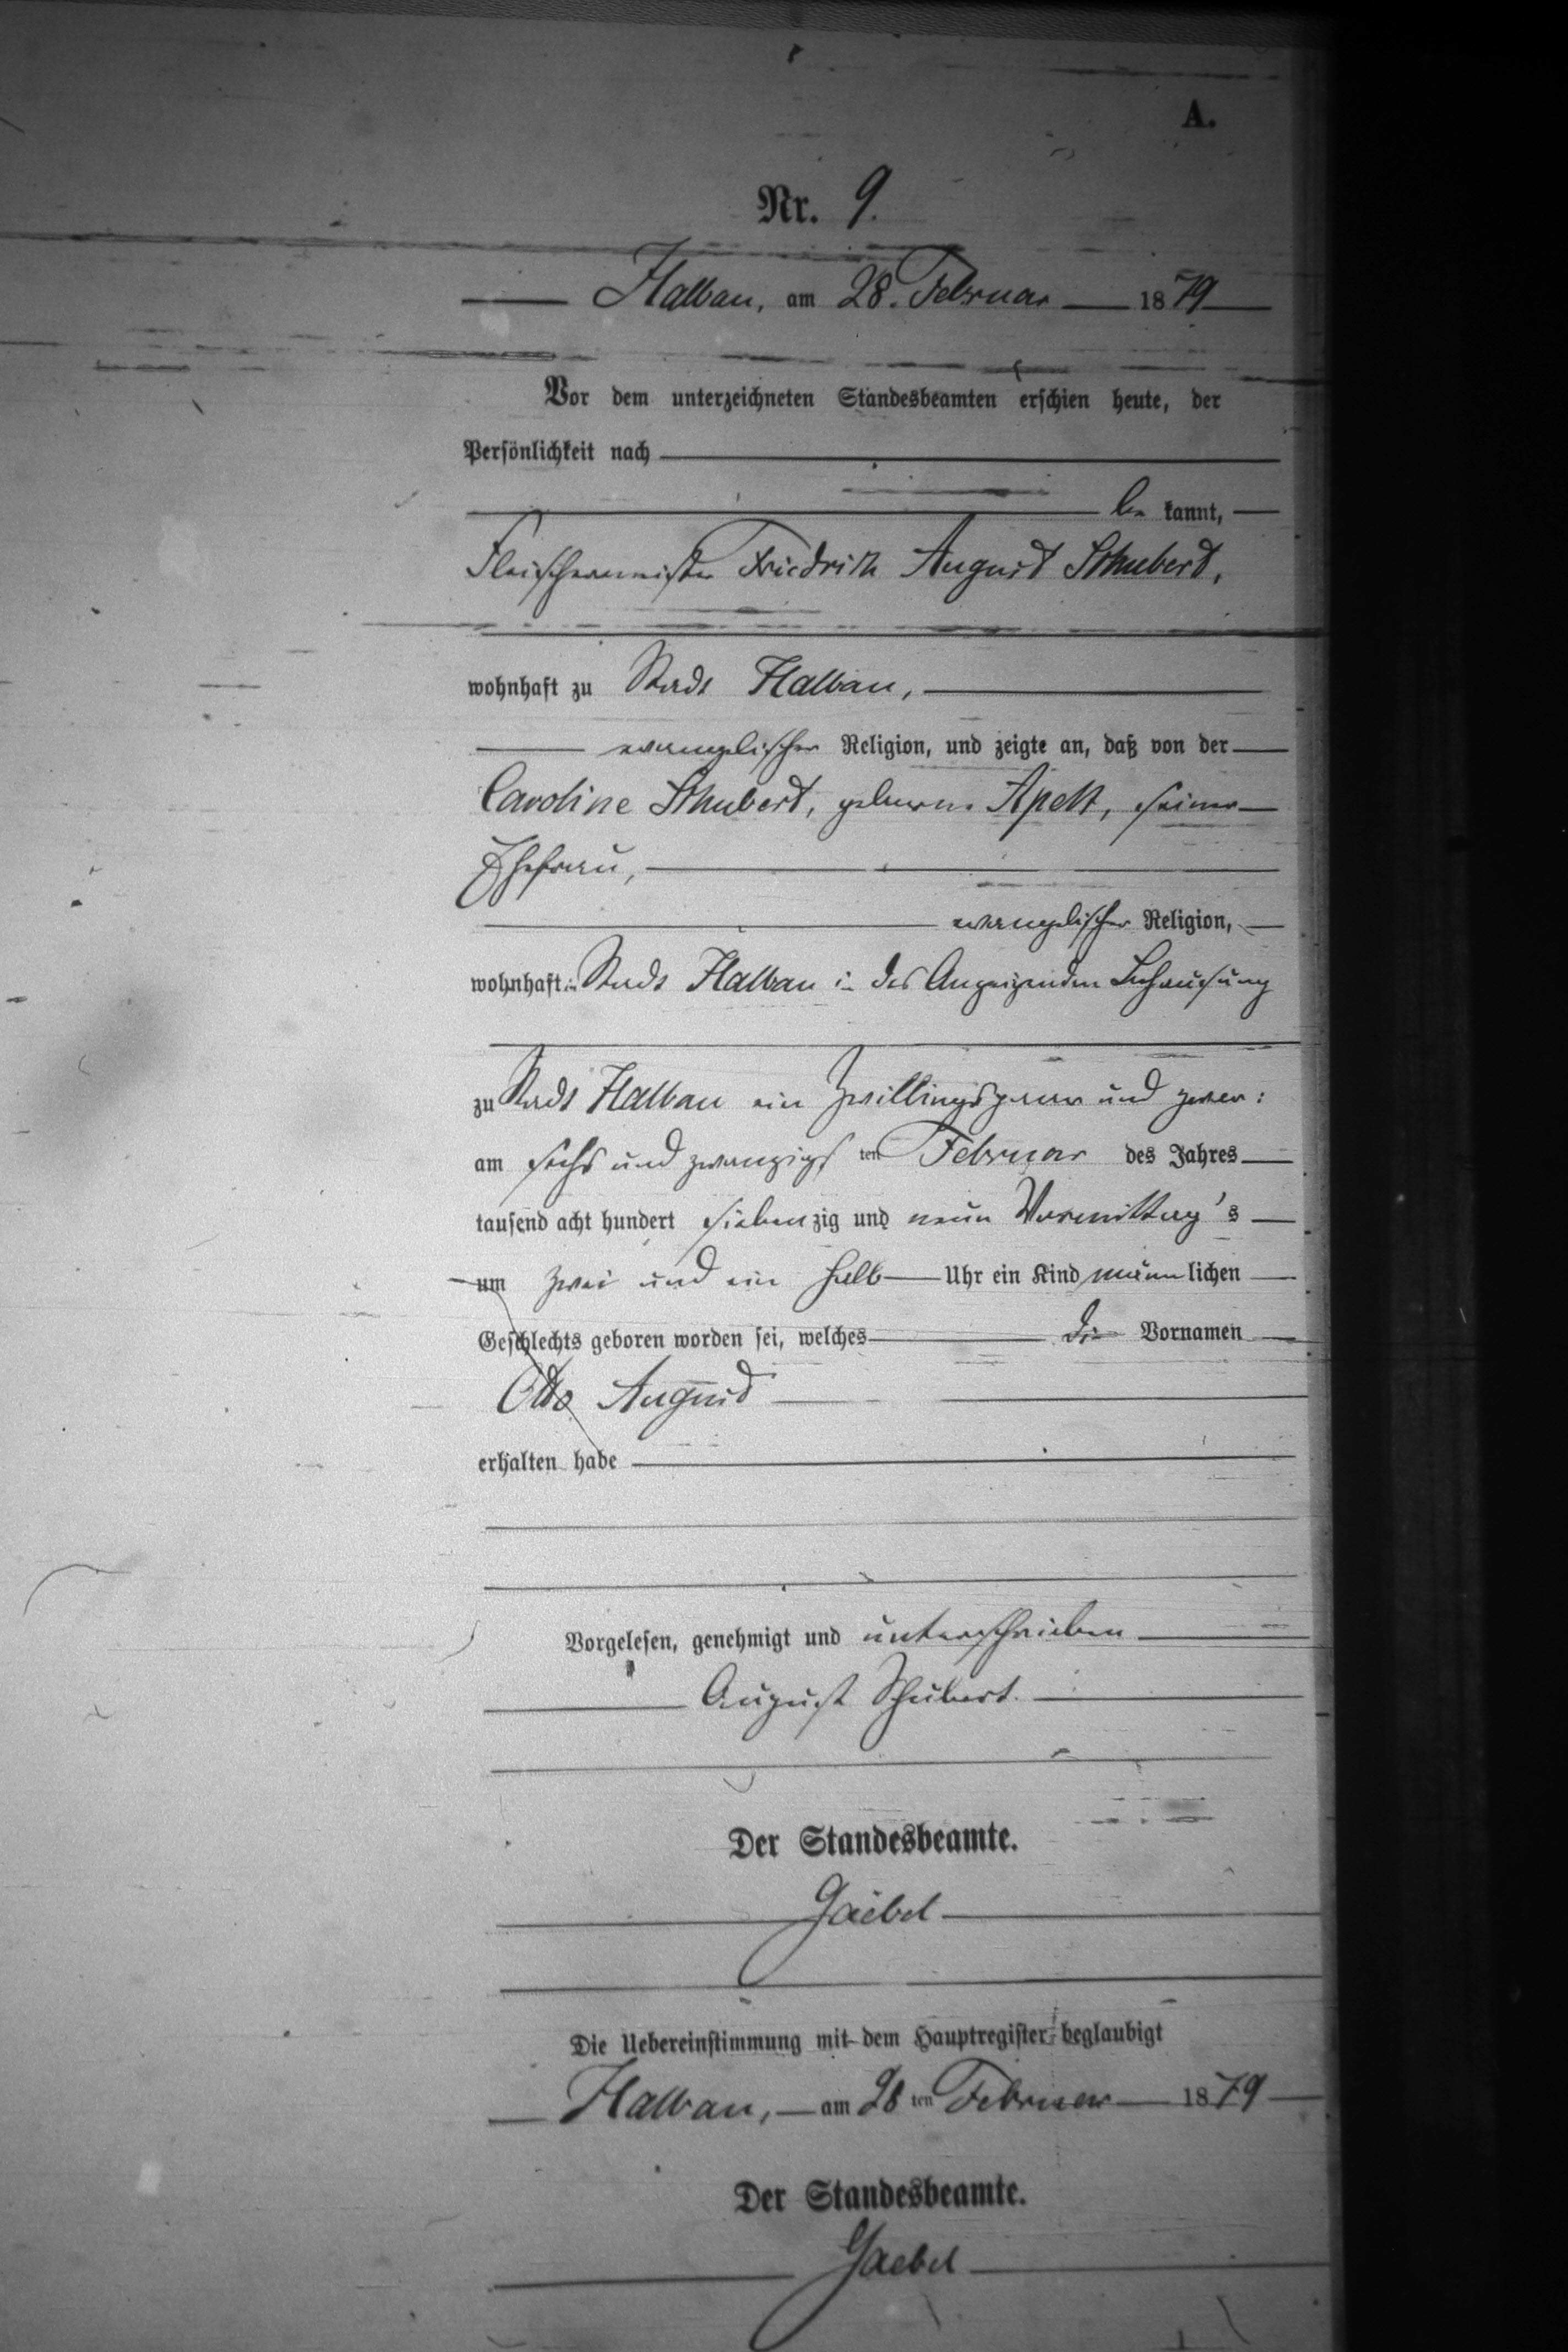 A.
Nr. 9.
Halbau, am 28. Februar 1879
Vor dem unterzeichneten Standesbeamten erschien heute, der
Persönlichkeit nach
be kannt,
Fleischermeister Friedrich August Schubert,
wohnhaft zu Stadt Halbau,
evangelischer Religion, und zeigte an, daß von der
Caroline Schubert, geborne Apelt, seiner
Ehefrau,
evangelischer Religion,
wohnhaft in Stadt Halbau in des Anzeigenden Behausung
zu Stadt Halbau ein Zwillingspaar und zwar:
am sechs und zwanzigs ten Februar des Jahres
tausend acht hundert sieben zig und neun Vormittag's
um zwei und ein halb Uhr ein Kind männ lichen
Geschlechts geboren worden sei, welches die Vornamen
Otto August
erhalten habe
Vorgelesen, genehmigt und unterschrieben
August Schubert.
Der Standesbeamte.
Gaebel
Die Uebereinstimmung mit dem Hauptregister beglaubigt
Halbau, am 28 ten Februar 1879
Der Standesbeamte.
Gaebel